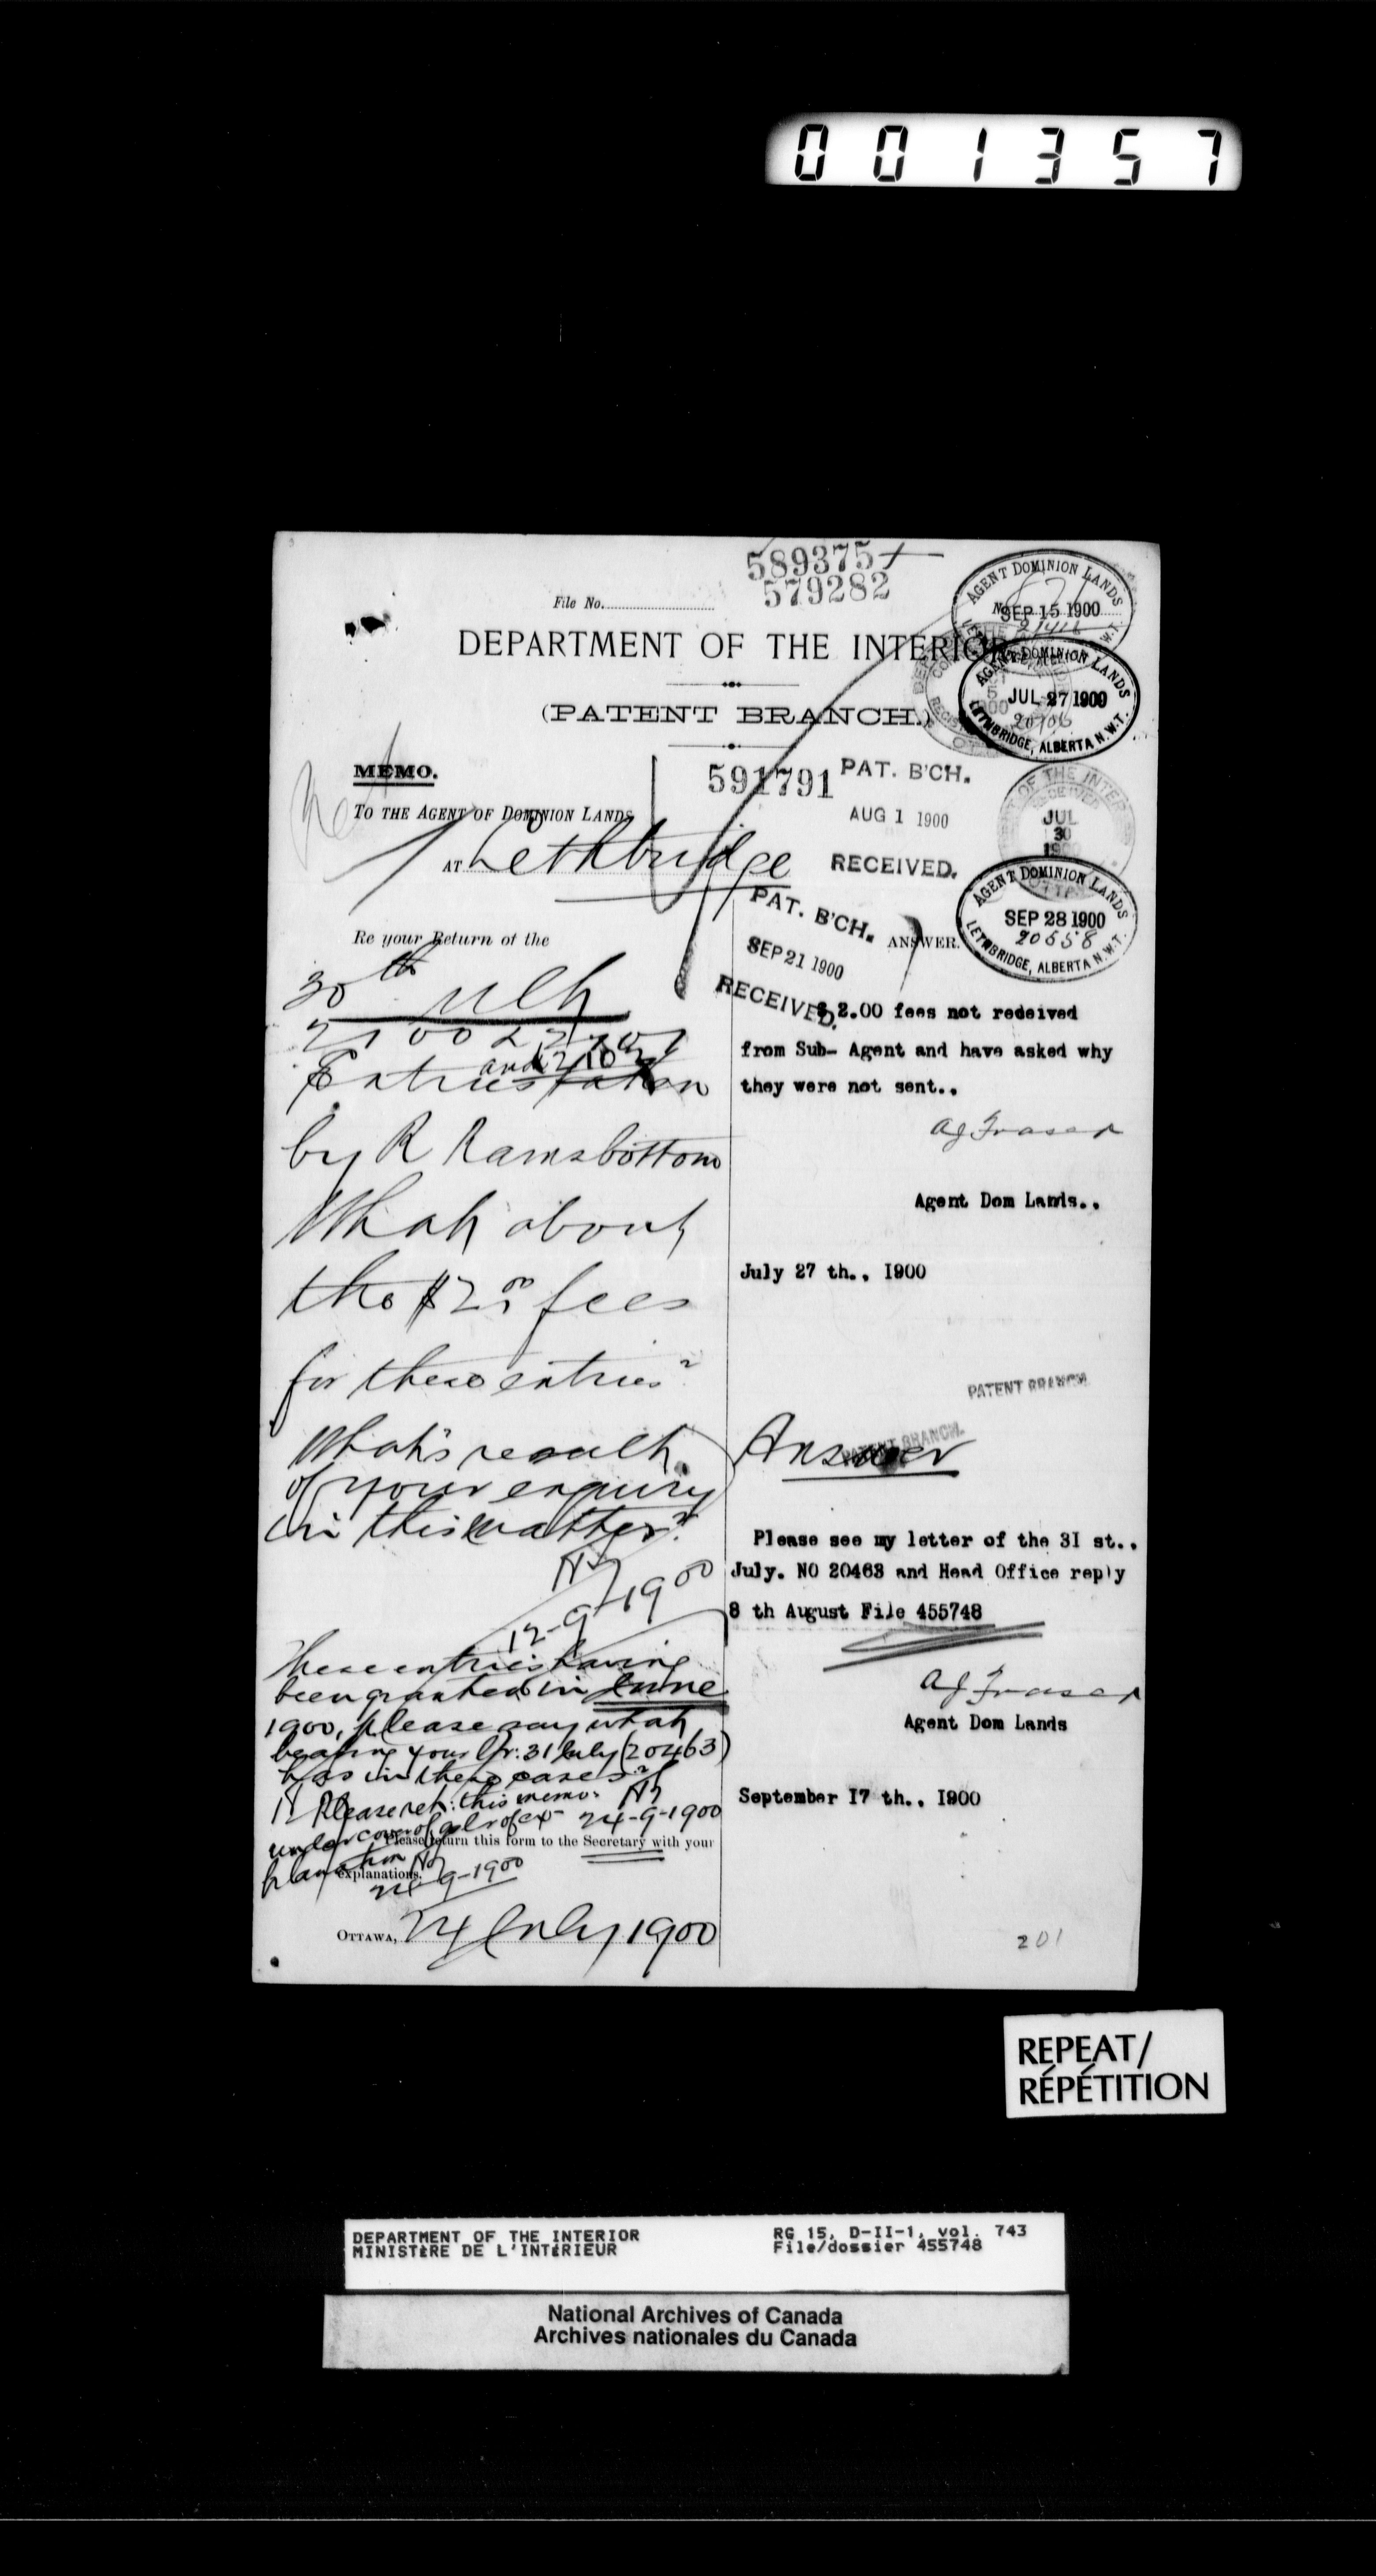 001357
589375
579282
File No.
DEPARTMENT OF THE INTERIOR
(PATENT BRANCH.)
AGENT DOMINION LANDS
SEP 15 1900
AGENT DOMINION LANDS
JUL 27 1900
20106
LETHBRIDGE, ALBERTA N.W.T.
MEMO.
591791
PAT. B'CH.
AUG 1 1900
RECEIVED.
JUL
30
TO THE AGENT OF DOMINION LANDS
AT Lethbridge
AGENT DOMINION LANDS
SEP 28 1900
20558
LETHBRIDGE, ALBERTA N.W.T.
PAT. B'CH.
SEP 21 1900
RECEIVED.
Re your Return of the
30th ult
Entries taken
by R Ramsbottom
What about
the $2.00 fees
for these entries?
What's result
of your enquiry
in this matter?
12-9-1900
These entries having
been granted in June
1900, please say what
bearing your lr. 31 July (20463)
has in these cases?
Please ret: this memo.
24-9-1900
under cover of
Please return this form to the Secretary with your
explanations.
24-9-1900
OTTAWA, 24 July 1900
ANSWER.
$ 2.00 fees not redeived
from Sub- Agent and have asked why
they were not sent..
AJ Fraser
Agent Dom Lands..
July 27 th., I900
PATENT BRANCH.
PATENT BRANCH.
Answer
Please see my letter of the 3I st..
July. NO 20463 and Head Office reply
8 th August File 455748
AJ Fraser
Agent Dom Lands
September I7 th.. I900
201
REPEAT/
RÉPÉTITION
DEPARTMENT OF THE INTERIOR
MINISTÈRE DE L'INTÉRIEUR
RG 15, D-II-1, vol. 743
File/dossier 455748
National Archives of Canada
Archives nationales du Canada